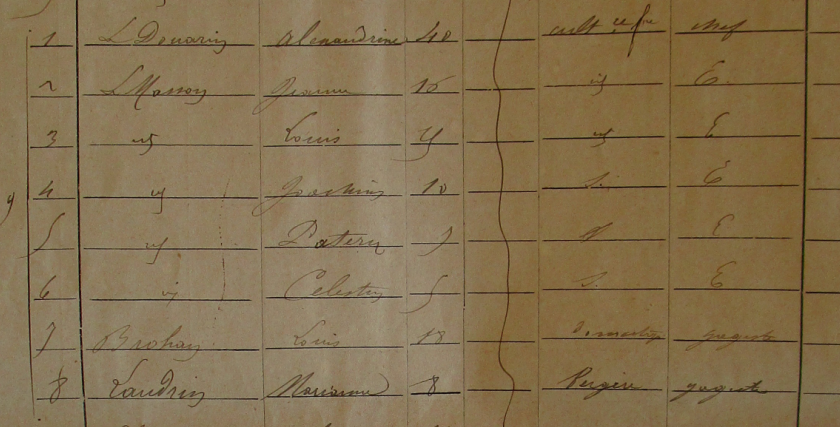 1 L Douarin Alexandrine 48 cult chef
2 L Masson Jeanne 16 id E.
3 id Louis id E
9 4 id Joachim 10 S. E
5 id Patern 7 E
6 id Celestin 5 S. E
7 Brohan Louis 18 domestique gagiste
8 Laudrin Marianne 8 Bergère gagiste